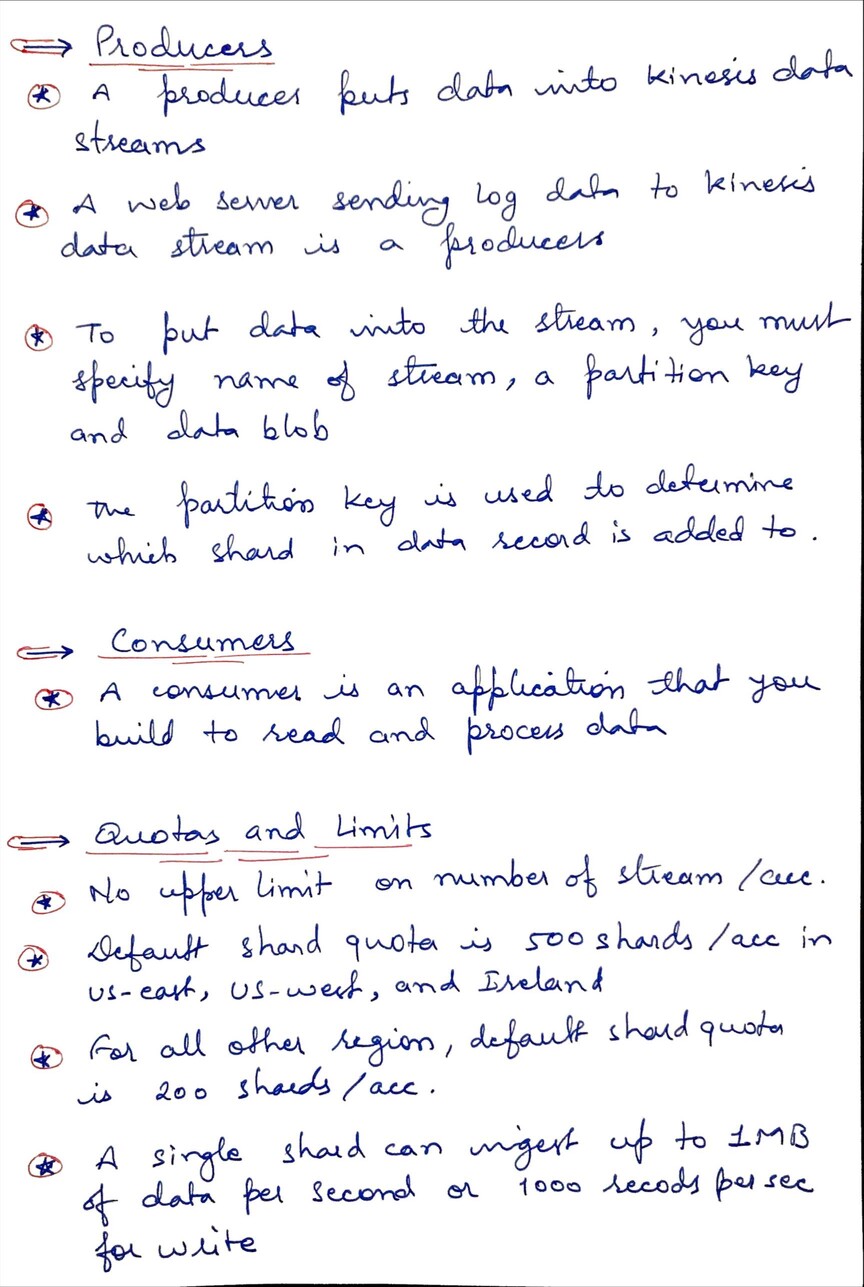 ⇒ Producers
* A producer puts data into kinesis data
streams
* A web server sending log data to kinesis
data stream is a producers
* To put data into the stream, you must
specify name of stream, a partition key
and data blob
* The partition key is used to determine
which shard in data record is added to.
⇒ Consumers
* A consumer is an application that you
build to read and process data
⇒ Quotas and Limits
* No upper limit on number of stream /acc.
* Default shard quota is 500 shards /acc in
US-east, US-west, and Ireland
* For all other region, default shard quota
is 200 shards /acc.
* A single shard can ingest up to 1MB
of data per second or 1000 recods per sec
for write